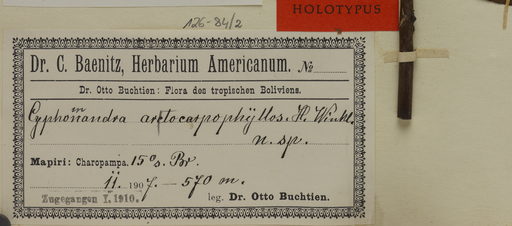 HOLOTYPUS
126-84/2
Dr. C. Baenitz, Herbarium Americanum. No
Dr. Otto Buchtien: Flora des tropischen Boliviens.
Cyphomandra arctocarpophyllos H. Winkl.
n. sp.
Mapiri: Charopampa. 15° s. Br.
II. 1907. — 570 m.
Zugegangen I. 1910. leg. Dr. Otto Buchtien.